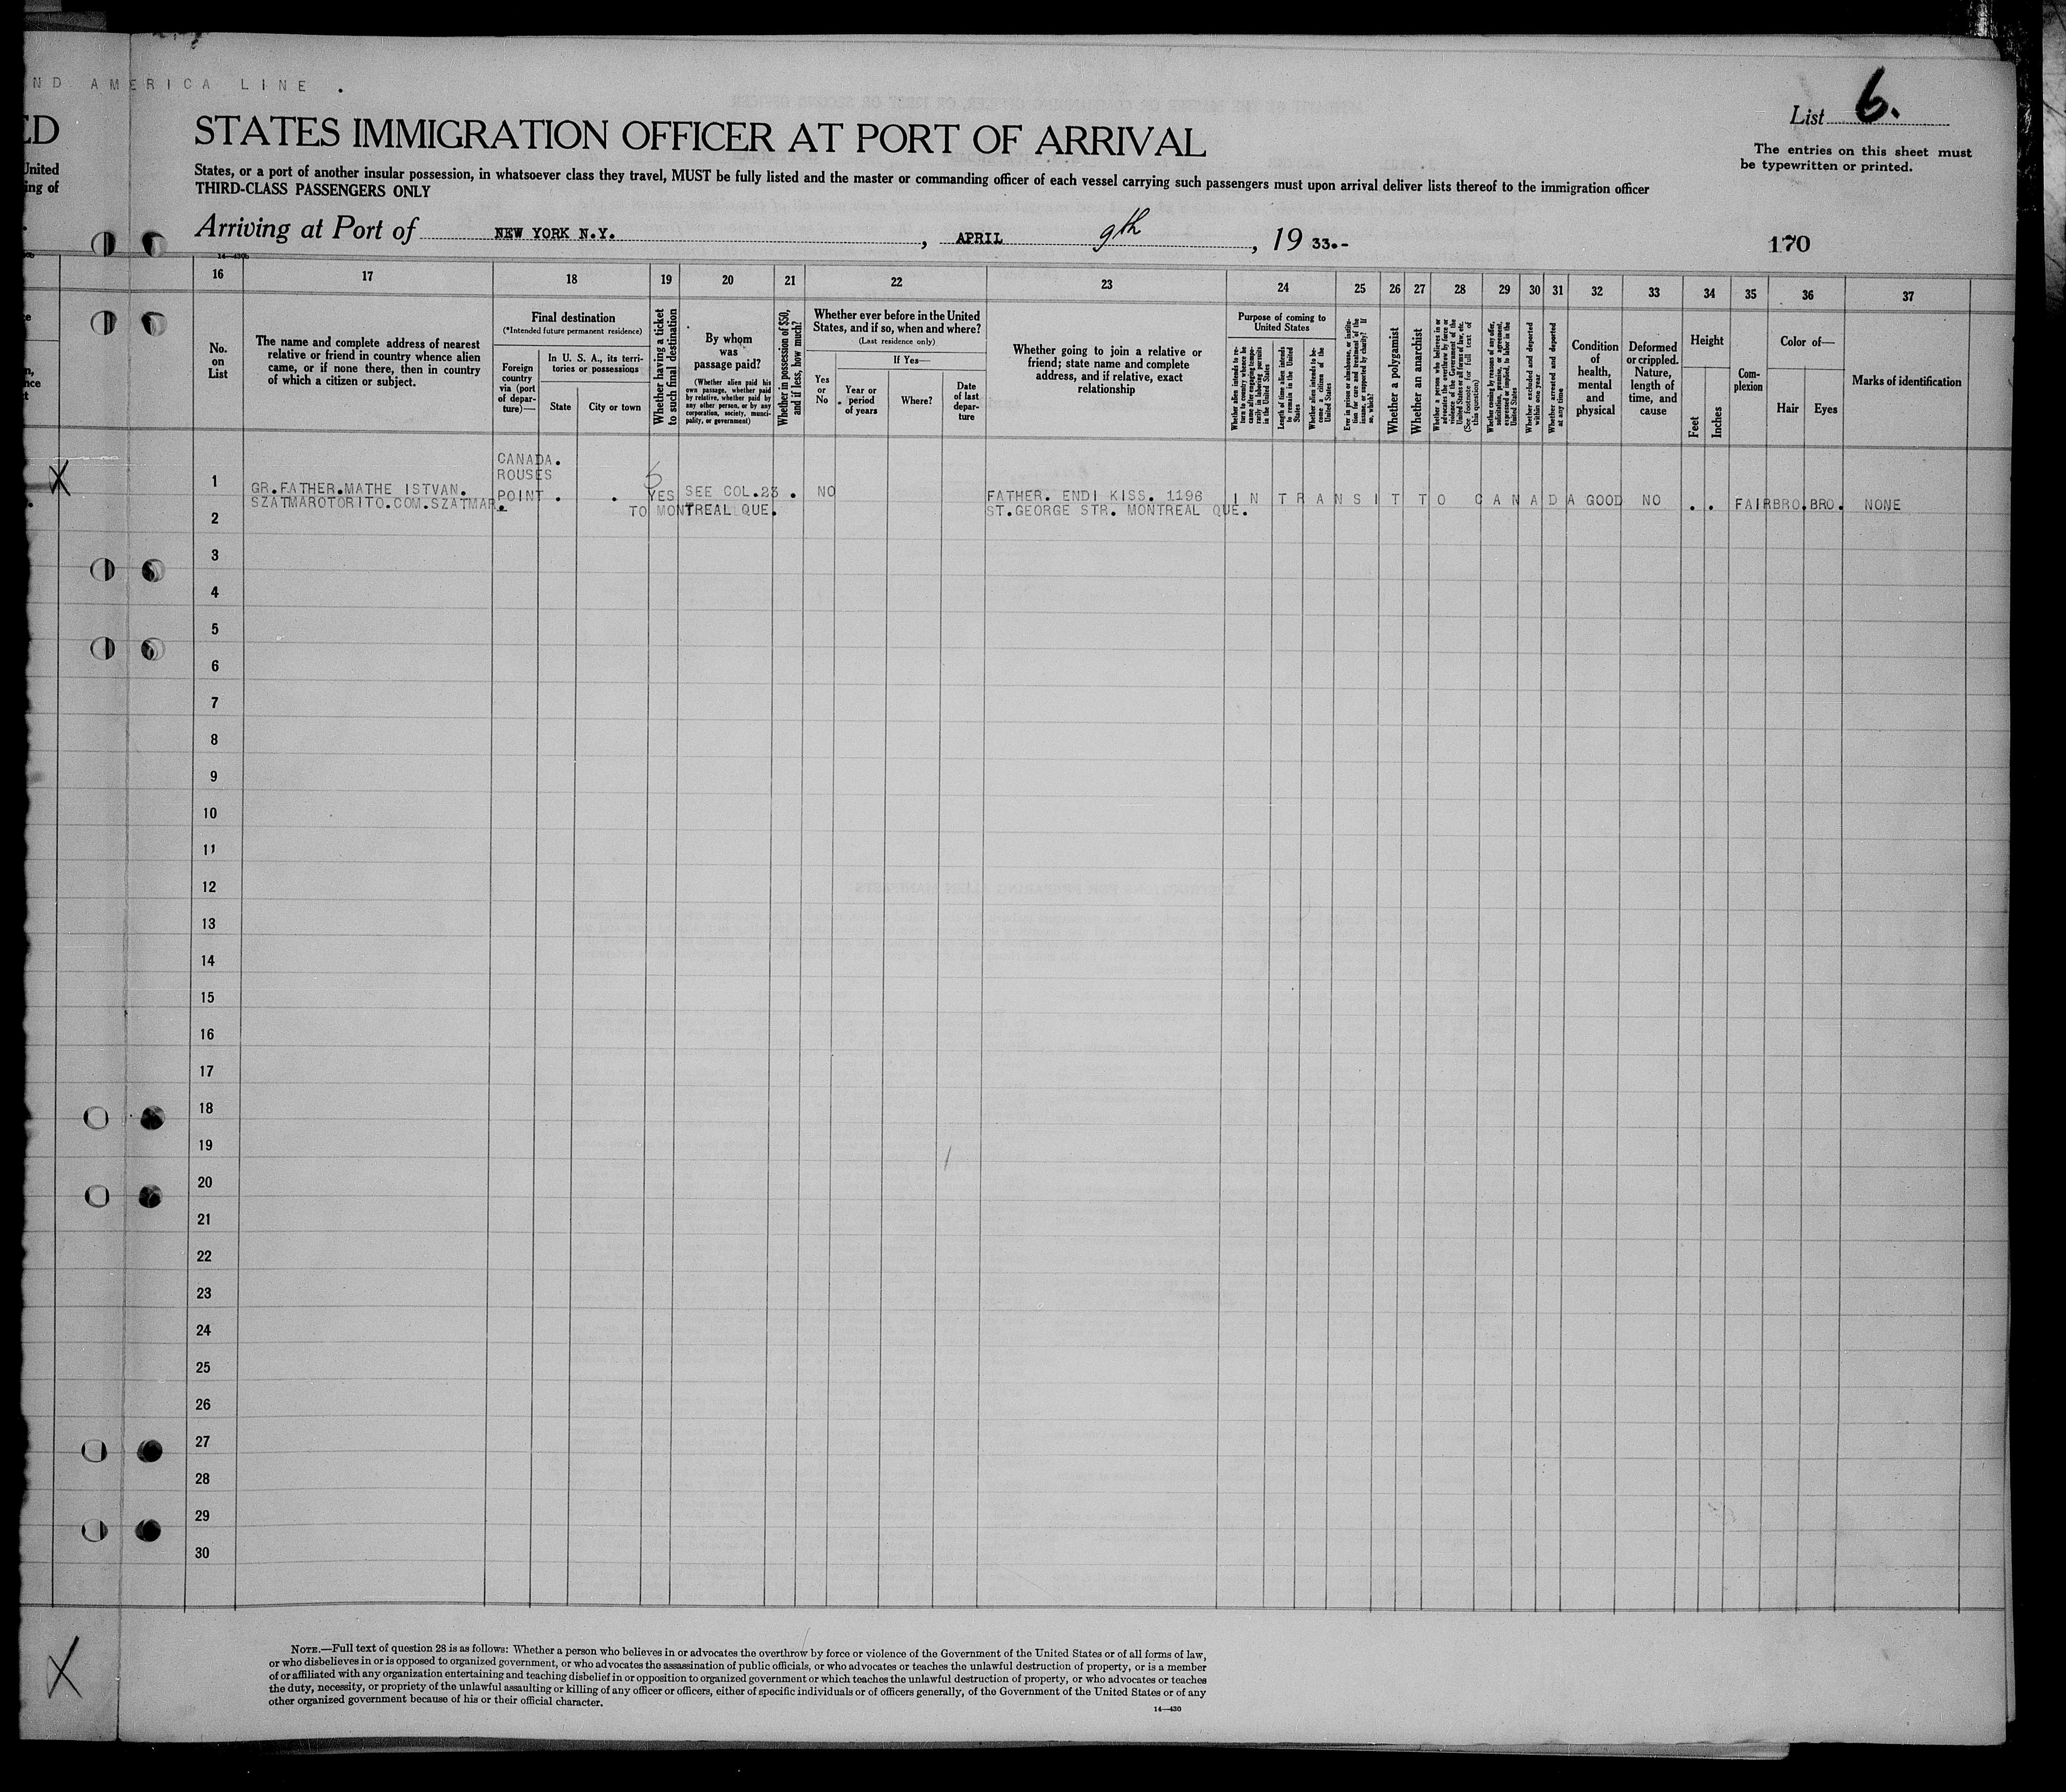 ND AMERICA LINE .
ED
STATES IMMIGRATION OFFICER AT PORT OF ARRIVAL
List 6.
The entries on this sheet must
be typewritten or printed.
United
ing of
States, or a port of another insular possession, in whatsoever class they travel, MUST be fully listed and the master or commanding officer of each vessel carrying such passengers must upon arrival deliver lists thereof to the immigration officer
THIRD-CLASS PASSENGERS ONLY
Arriving at Port of NEW YORK N.Y. , APRIL 9th , 19 33.-
170
14—430b
16 17 18 19 20 21 22 23 24 25 26 27 28 29 30 31 32 33 34 35 36 37
No.
on
List
The name and complete address of nearest
relative or friend in country whence alien
came, or if none there, then in country
of which a citizen or subject.
Final destination
(*Intended future permanent residence)
Foreign
country
via (port
of depar-
ture)—
In U. S. A., its terri-
tories or possessions
State
City or town
Whether having a ticket
to such final destination
By whom
was
passage paid?
(Whether alien paid his
own passage, whether paid
by relative, whether paid by
any other person, or by any
corporation, society, munici-
pality, or government)
Whether in possession of $50,
and if less, how much?
Whether ever before in the United
States, and if so, when and where?
(Last residence only)
If Yes—
Yes
or
No
Year or
period
of years
Where?
Date
of last
depar-
ture
Whether going to join a relative or
friend; state name and complete
address, and if relative, exact
relationship
Purpose of coming to
United States
Whether alien intends to re-
turn to country whence he
came after engaging tempo-
rarily in laboring pursuits
in the United States
Length of time alien intends
to remain in the United
States
Whether alien intends to be-
come a citizen of the
United States
Ever in prison or almshouse, or institu-
tion for care and treatment of the
insane, or supported by charity? If
so, which?
Whether a polygamist
Whether an anarchist
Whether a person who believes in or
advocates the overthrow by force or
violence of the Government of the
United States or all forms of law, etc.
(See footnote for full text of
this question)
Whether coming by reasons of any offer,
solicitation, promise, or agreement,
expressed or implied, to labor in the
United States
Whether excluded and deported
within one year
Whether arrested and deported
at any time
Condition
of
health,
mental
and
physical
Deformed
or crippled.
Nature,
length of
time, and
cause
Height
Feet
Inches
Com-
plexion
Color of—
Hair
Eyes
Marks of identification
CANADA.
ROUSES
1 GR.FATHER.MATHE ISTVAN. POINT . . YES SEE COL.23 . NO FATHER. ENDI KISS. 1196 IN TRANSIT TO CANADA GOOD NO . . FAIR BRO. BRO. NONE
SZATMAROTORITO.COM.SZATMAR. TO MONTREAL QUE. ST.GEORGE STR. MONTREAL QUE.
2
3
4
5
6
7
8
9
10
11
12
13
14
15
16
17
18
19
20
21
22
23
24
25
26
27
28
29
30
NOTE.—Full text of question 28 is as follows: Whether a person who believes in or advocates the overthrow by force or violence of the Government of the United States or of all forms of law,
or who disbelieves in or is opposed to organized government, or who advocates the assassination of public officials, or who advocates or teaches the unlawful destruction of property, or is a member
of or affiliated with any organization entertaining and teaching disbelief in or opposition to organized government or which teaches the unlawful destruction of property, or who advocates or teaches
the duty, necessity, or propriety of the unlawful assaulting or killing of any officer or officers, either of specific individuals or of officers generally, of the Government of the United States or of any
other organized government because of his or their official character.
14—430